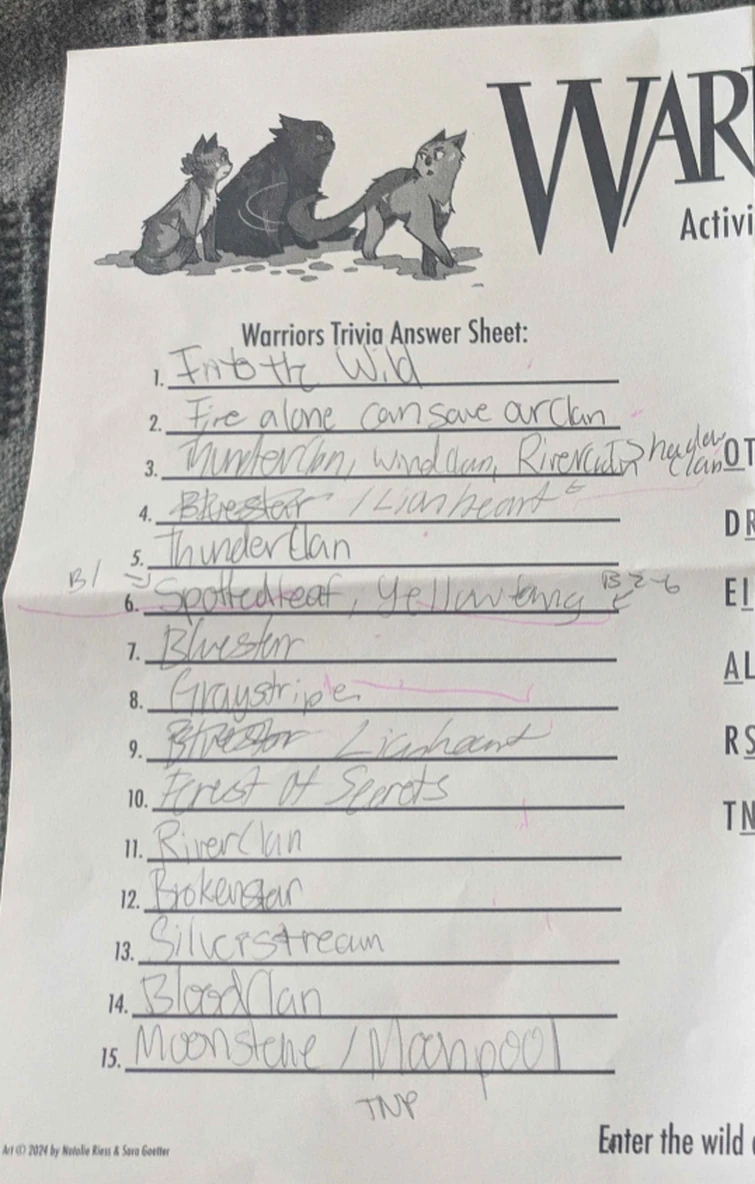 WAR
Activi
Warriors Trivia Answer Sheet:
1. Into the Wild
2. Fire alone can save our Clan
3. ThunderClan, Windclan, RiverClan, Shadow Clan
OT
4. Bluestar / Lionheart
DR
5. ThunderClan
B1
6. Spottedleaf, Yellowfang B2-6
EI
7. Bluestar
AL
8. Graystripe
9. Bluestar Lionheart
RS
10. Forest Of Secrets
TN
11. RiverClan
12. Brokenstar
13. Silverstream
14. BloodClan
15. Moonstone / Moonpool
TNP
Enter the wild
Art © 2024 by Natalie Riess & Sara Goetter